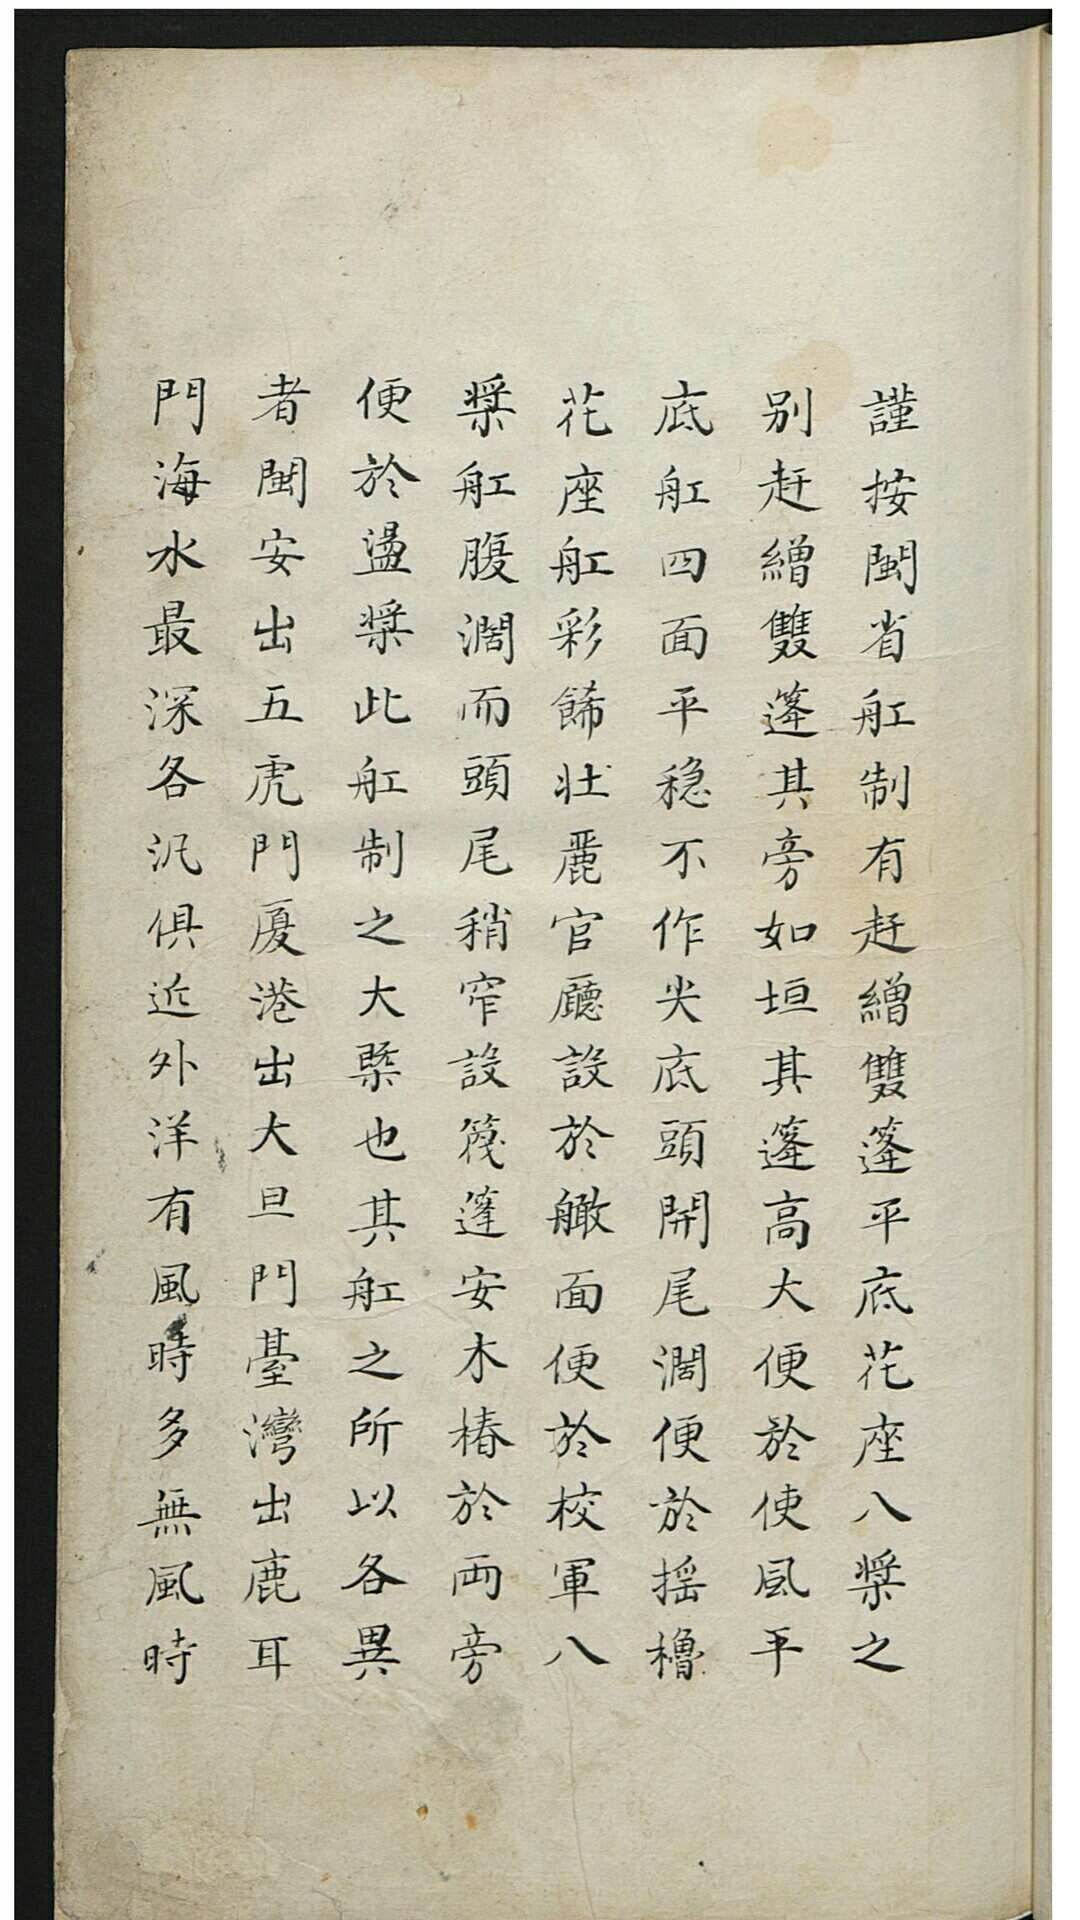 謹按閩省舡制有赶繒雙篷平底花座八槳之
别赶繒雙篷其旁如垣其篷高大便於使風平
底舡四面平穏不作尖底頭開尾濶便於揺櫓
花座舡彩餙壯麗官廳設於艙面便於校軍八
槳舡腹濶而頭尾稍窄設篾篷安木樁於両旁
便於盪槳此舡制之大槩也其舡之所以各異
者閩安出五虎門厦港出大旦門臺灣出鹿耳
門海水最深各汛俱近外洋有風時多無風時